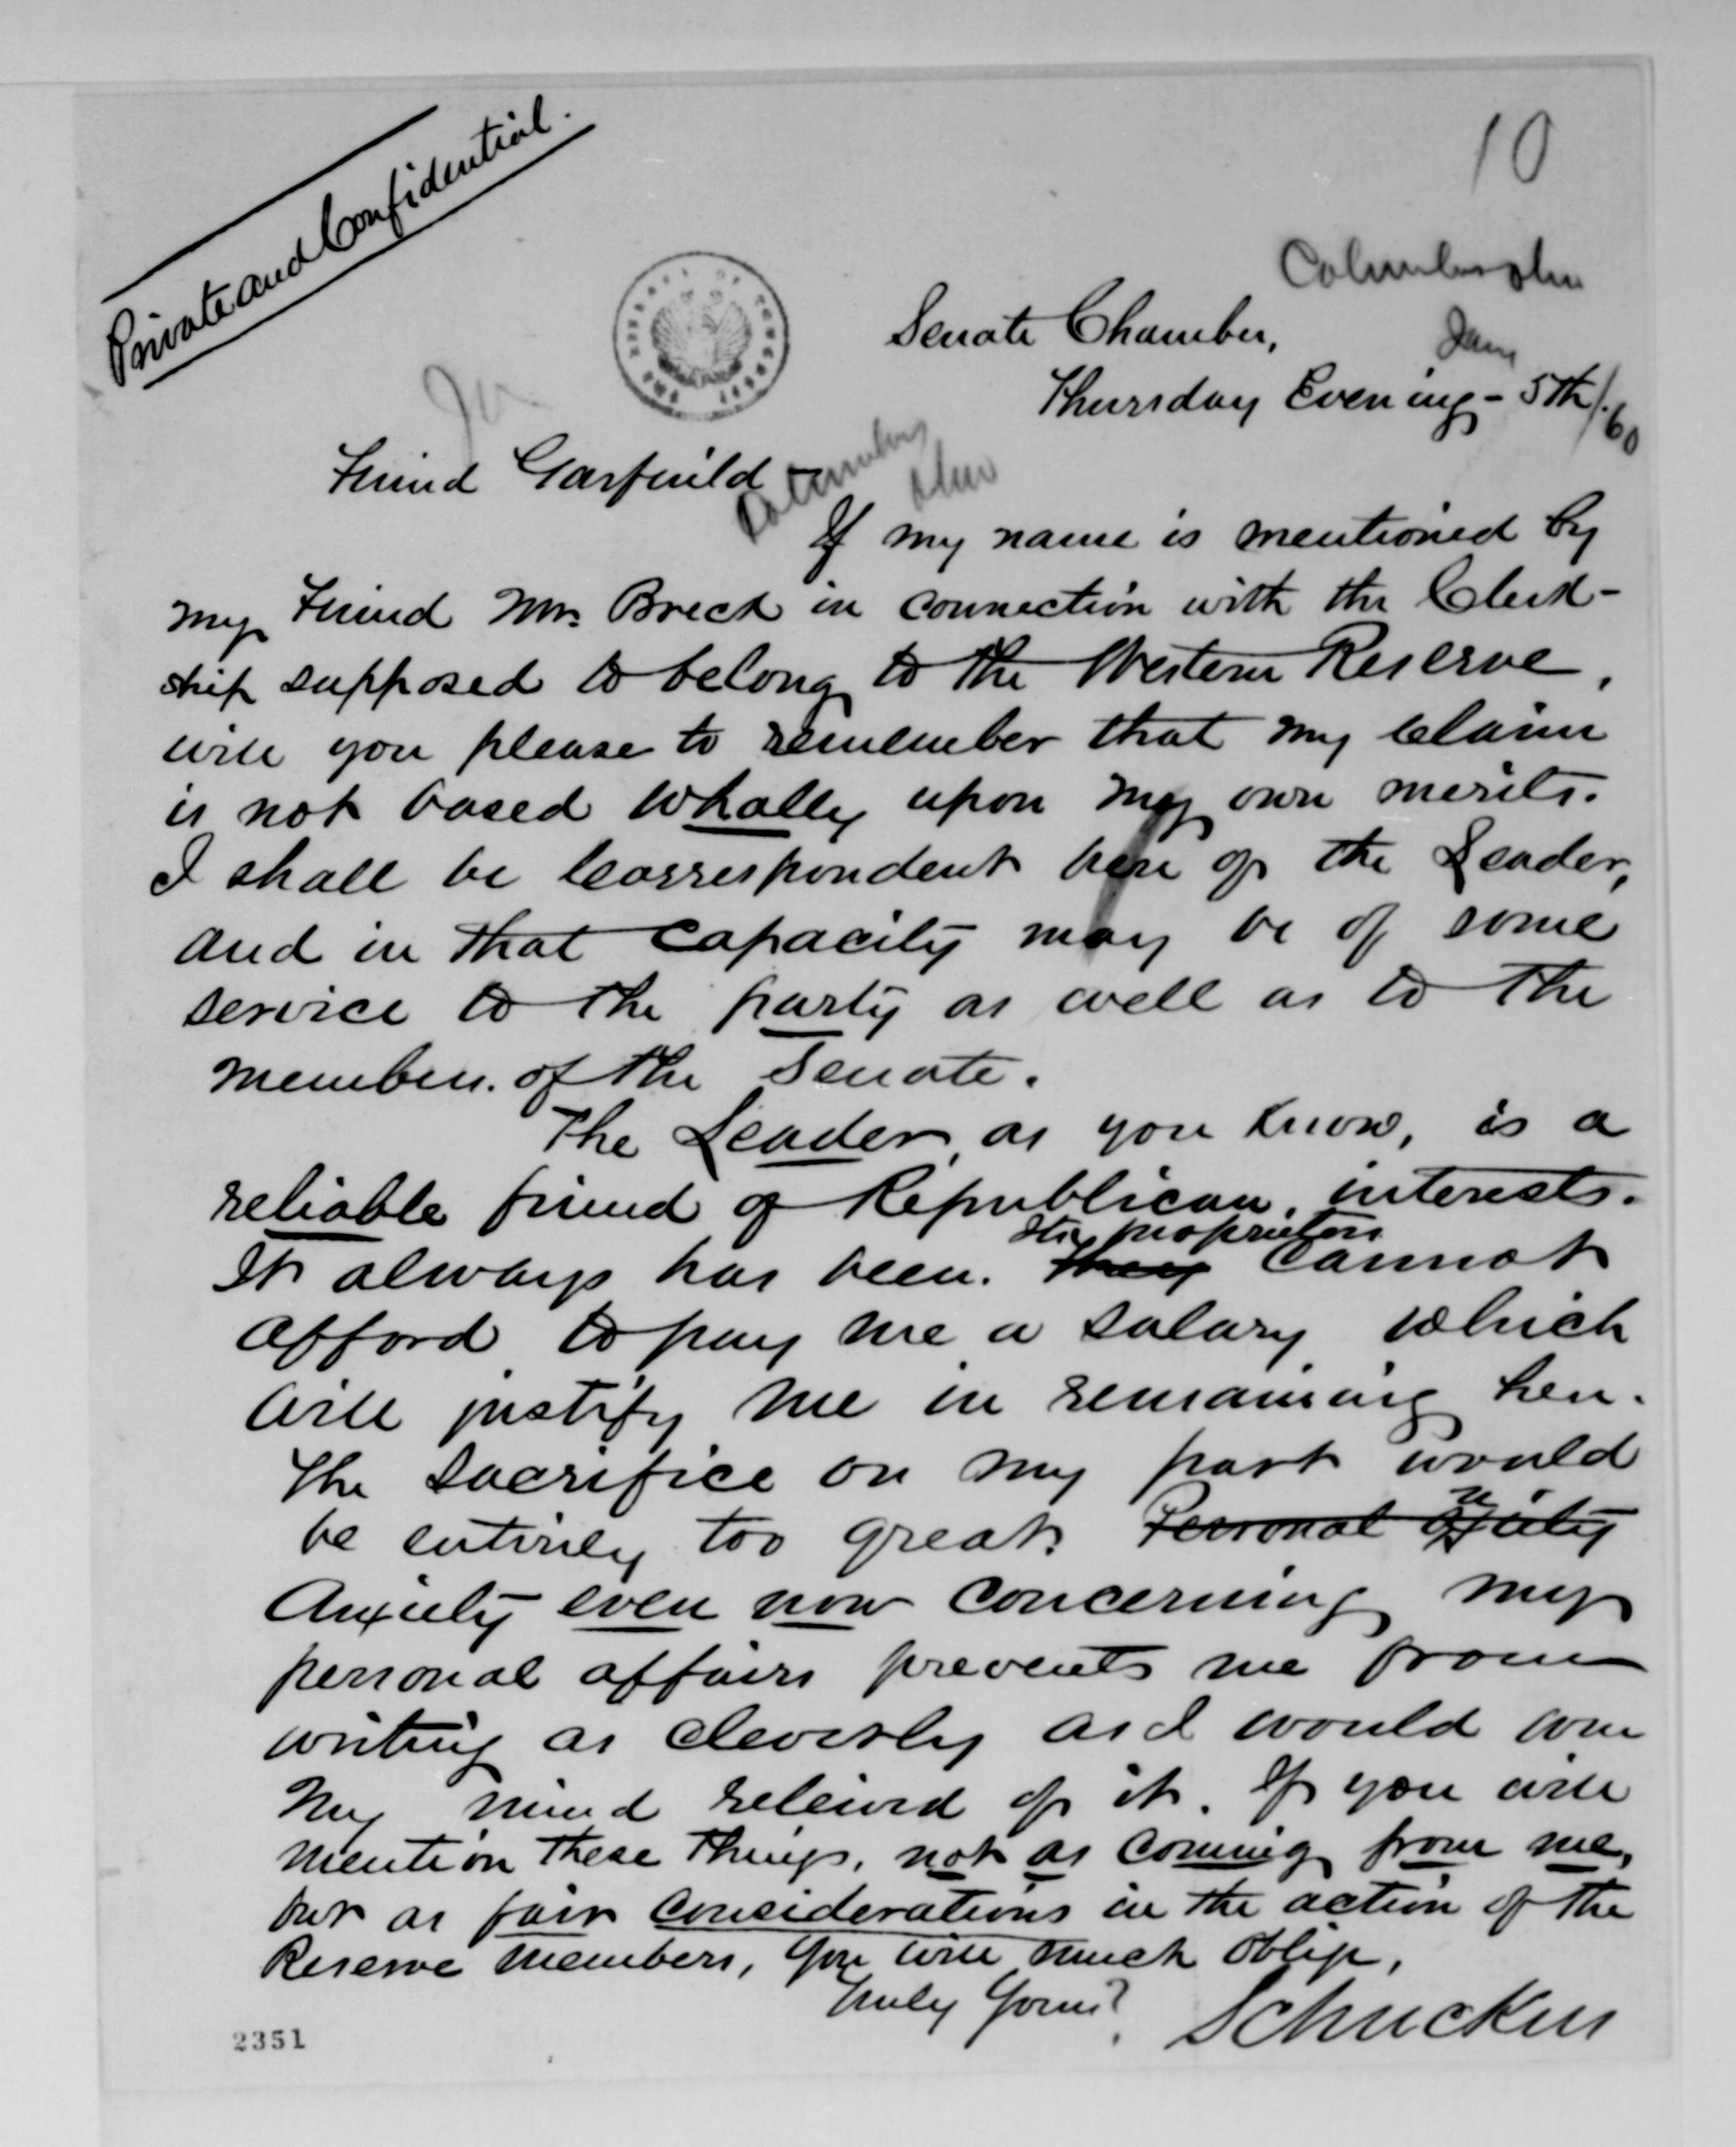 Private and Confidential.
10
Columbus Ohio
Senate Chamber,
Jany
Thursday Evening - 5th/.60
Friend Garfield -
Columbus
Ohio
If my name is mentioned by
my Friend Mr. Breck in connection with the Clerk-
ship supposed to belong to the Western Reserve,
will you please to remember that my claim
is not based wholly upon my own merits.
I shall be Corrrespondent here of the Leader,
and in that capacity may be of some
service to the party as well as to the
members of the Senate.
The Leader, as you know, is a
reliable friend of Republican interests.
Its proprietors
It always has been. They cannot
afford to pay me a salary which
will justify me in remaining here.
The sacrifice on my part would
be entirely too great. Personal
Anxiety even now concerning my
personal affairs prevents me from
writing as cleverly as I would were
my mind releived of it. If you will
mention these things, not as coming from me,
but as fair considerations in the action of the
Reserve members, you will much oblige,
Truly Yours,
Schuckers
2351